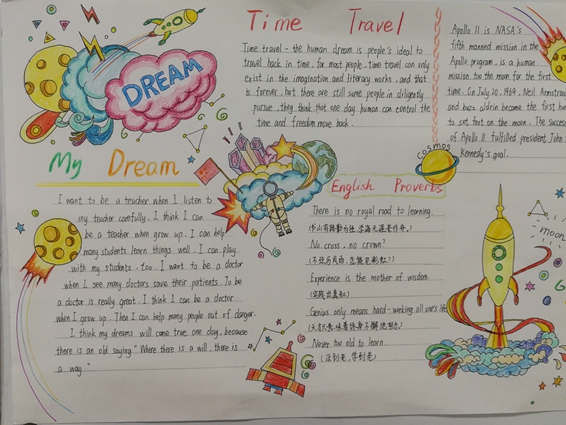 DREAM
Time Travel
Time travel - the human dream is people's ideal to
travel back in time, for most people, time travel can only
exist in the imagination and literary works, and that
is forever, but there are still some people in diligently
pursue, they think that one day human can control the
time and freedom move back.
Apollo 11 is NASA's
fifth manned mission in the
Apollo program, is a human
mission to the moon for the first
time. On July 20, 1969, Neil Armstrong
and buzz aldrin became the first hum
to set foot on the moon. The success
of Apollo 11 fulfilled president John
Kennedy's goal.
My Dream
I want to be a teacher when I listen to
my teacher carefully. I think I can
be a teacher when grow up. I can help
many students learn things well. I can play
with my students, too. I want to be a doctor
when I see many doctors save their patients. To be
a doctor is really great. I think I can be a doctor
when I grow up. Then I can help many people out of danger.
I think my dreams will come true, one day, because
there is an old saying "Where there is a will, there is
a way."
cosmos
English Proverbs
There is no royal road to learning.
(书山有路勤为径,学海无涯苦作舟。)
No cross, no crown?
(不经历风雨,怎能见彩虹?)
Experience is the mother of wisdom.
(实践出真知)
Genius only means hard-working all one's life
(天才意味着终身不懈地努力)
Never too old to learn
(活到老,学到老)
moon